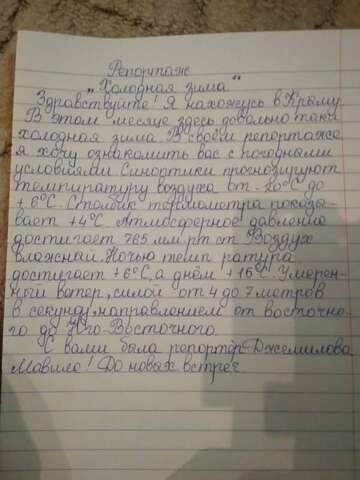 Репортаж
„Холодная зима"
Здравствуйте! Я нахожусь в Крыму.
В этом месяце здесь довально таки
холодная зима. В своём репортаже
я хочу ознакомить вас с погодными
условиями. Синоптики прогнозируют
температуру воздуха от -20°C до
+6°C. Столбик термометра показы-
вает +4°C. Атмосферное давление
достигает 765 мм рт ст. Воздух
влажный. Ночью темп ратура
достигает +6°C, а днём +16°C. Умерен-
ный ветер, силой от 4 до 7 метров
в секунду, направлением от восточно-
го до Юго-Восточного.
С вами была репортёр-Джемилова
Мавиле! До новых встреч